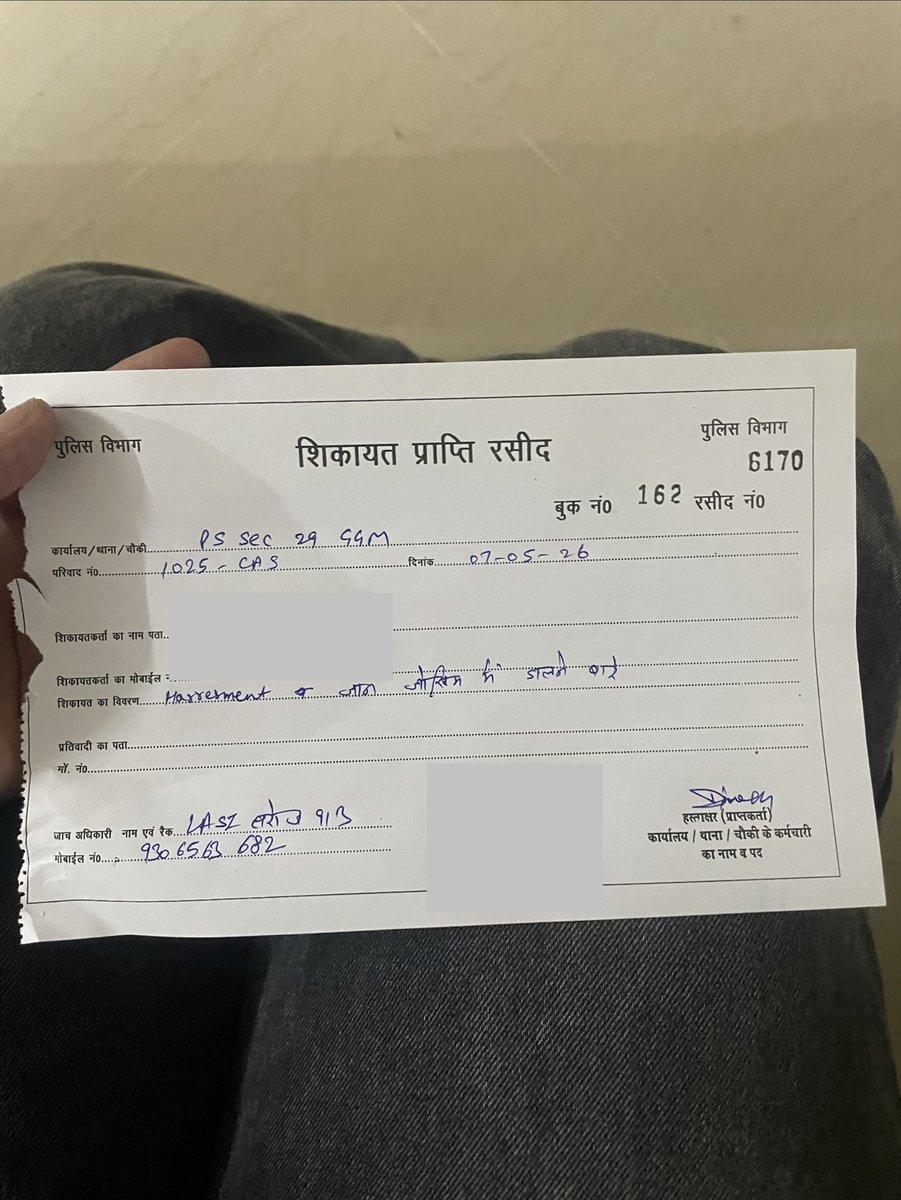 पुलिस विभाग
शिकायत प्राप्ति रसीद
पुलिस विभाग
6170
बुक नं0 162 रसीद नं0
कार्यालय/थाना/चौकी PS Sec 29 GGM
परिवाद नं0 1025-CAS दिनांक 07-05-26
शिकायतकर्ता का नाम पता
शिकायतकर्ता का मोबाईल
शिकायत का विवरण Harresment व जान जोखिम में डालने बारे
प्रतिवादी का पता
मों. नं0
जाच अधिकारी नाम एवं रैक LASI सरोज 913
मोबाईल नं0 9306563 682
Dinesh
हस्ताक्षर (प्राप्तकर्ता)
कार्यालय / थाना / चौकी के कर्मचारी
का नाम व पद